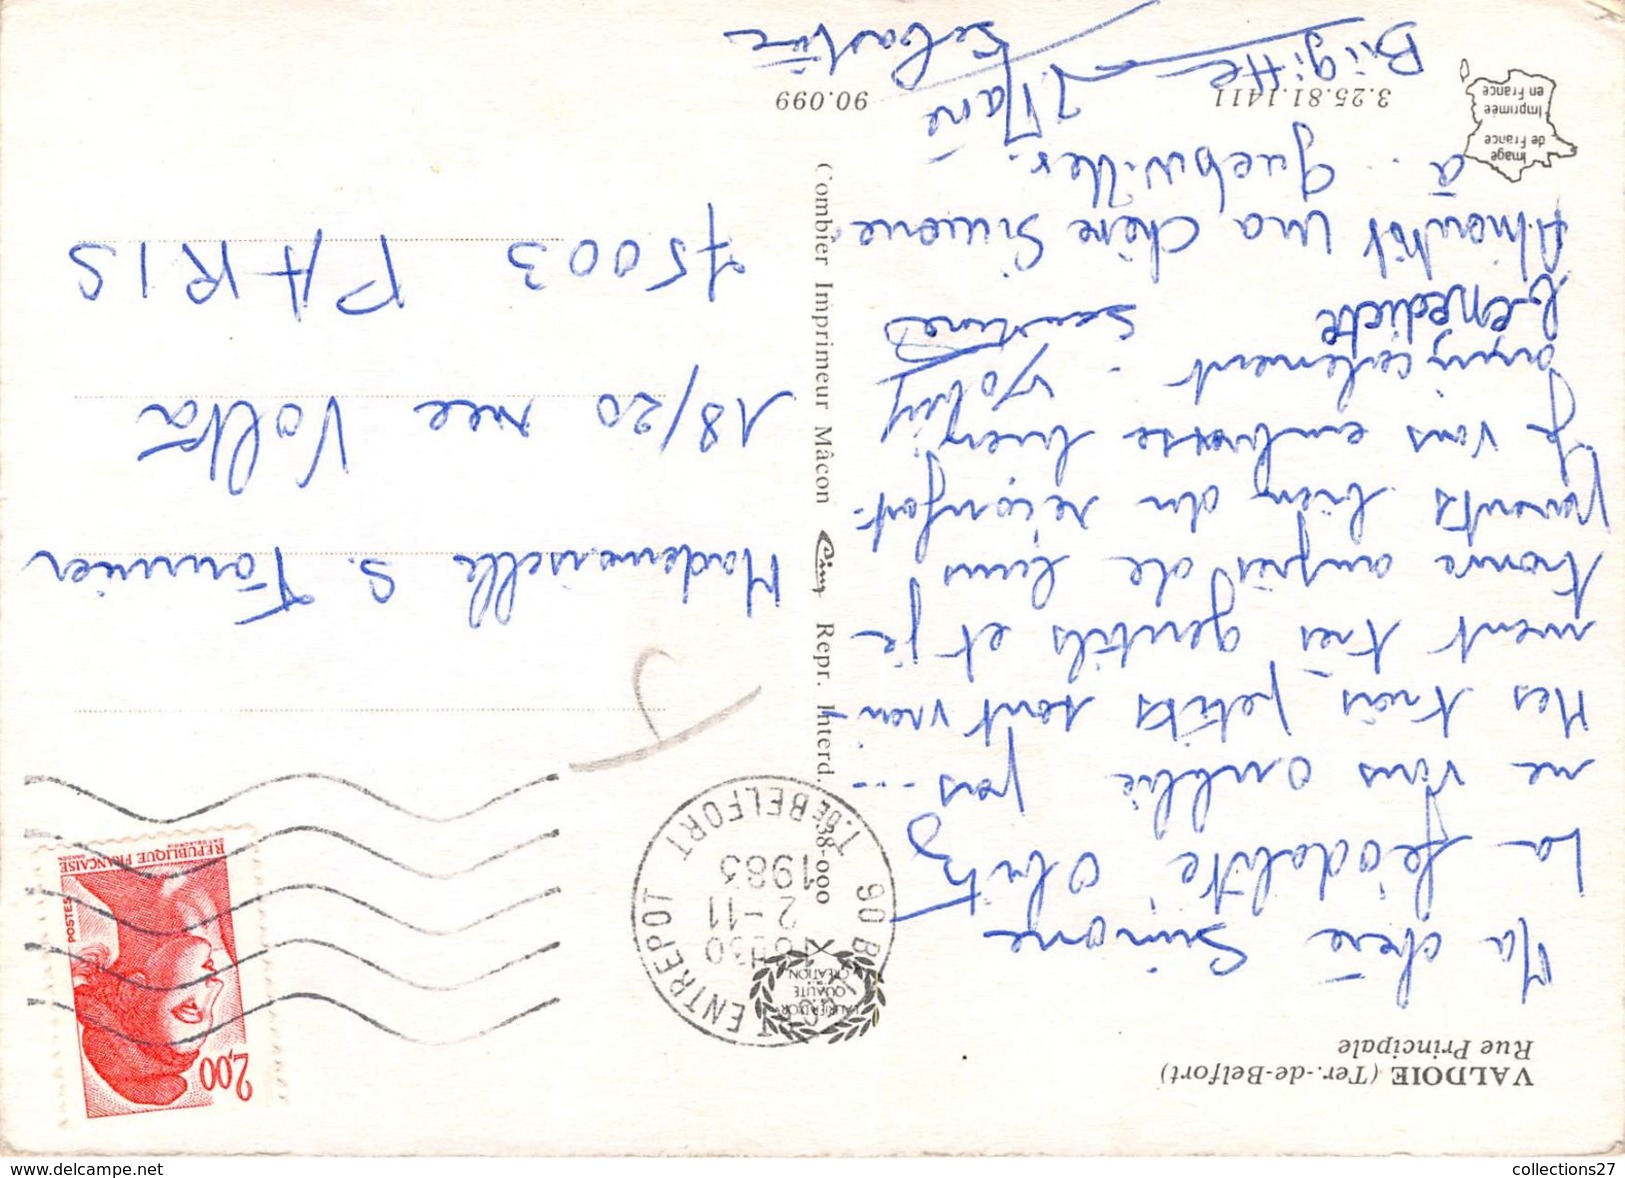 VALDOIE (Ter.-de-Belfort)
Rue Principale
Ma chère Simone
La
ne vous oublie pas ...
Mes trois petits sont vrai-
ment très gentils et je
trouve auprès de leurs
parents bien du réconfort.
Je vous embrasse bien
Benedicte
Aimantôt ma chère Simone
à .. Guebwiller.
Brigitte Marie
Sébastien
Image
de France
Imprimée
en France
3.25.81.1411
90.099
Combier Imprimeur Mâcon Cim Repr. Interd.
38-000
LAURIER D'OR
QUALITÉ
CRÉATION
90 BELFORT ENTREPOT
T. DE BELFORT
H30
2-11
1983
2,00
POSTES
RÉPUBLIQUE FRANÇAISE
Mademoiselle S. Fournier
18/20 rue Volta
75003 PARIS
www.delcampe.net
collections27